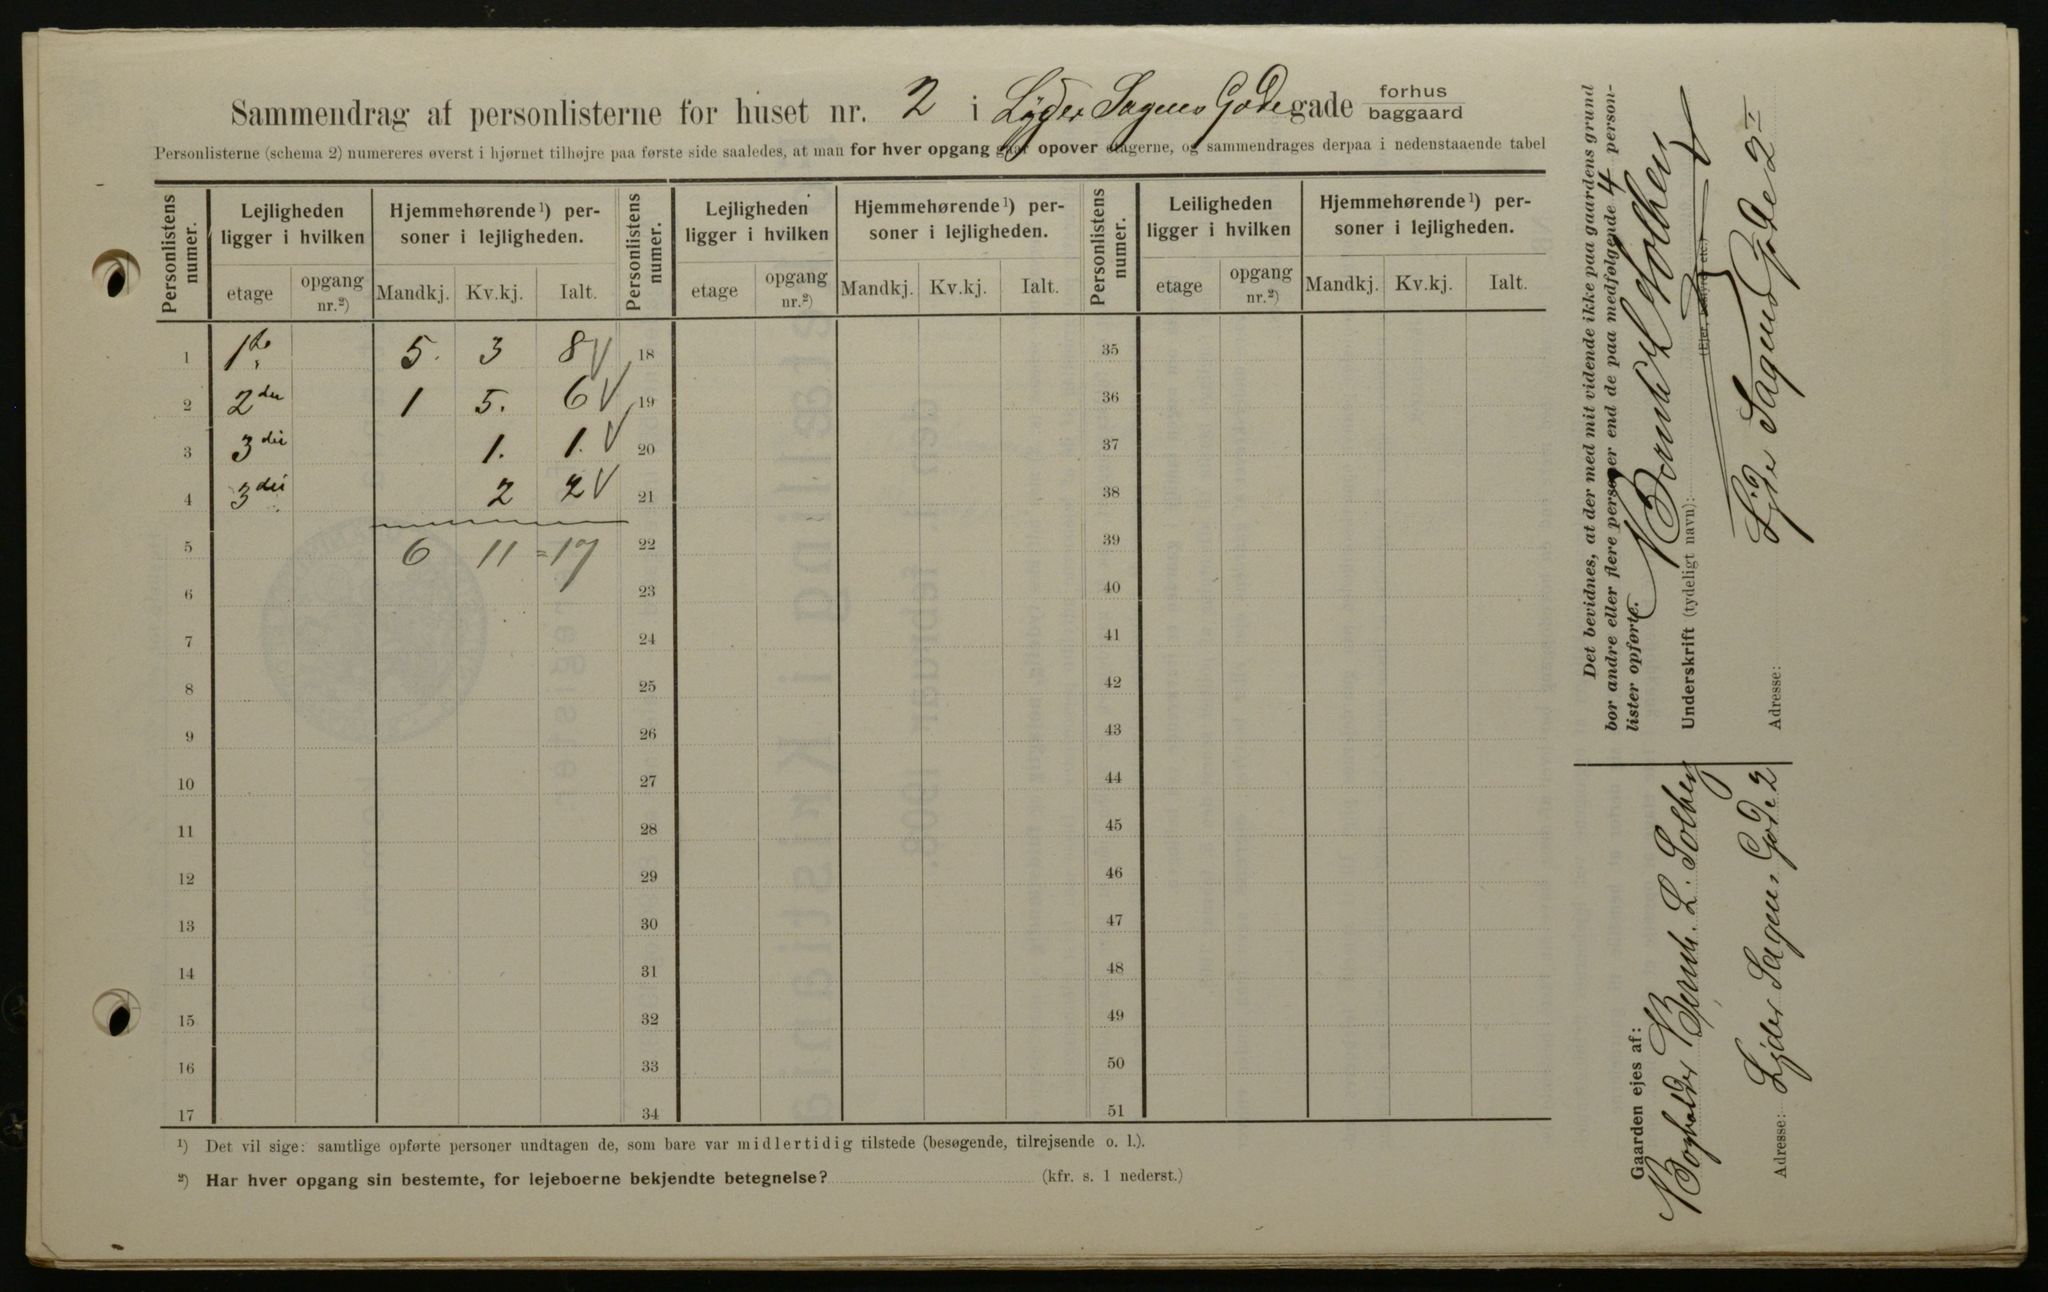 Sammendrag af personlisterne for huset nr. 2 i Lyder Sagens Gade gade forhus baggaard
Personlisterne (schema 2) numereres øverst i hjørnet tilhøjre paa første side saaledes, at man for hver opgang gaar opover etagerne, og sammendrages derpaa i nedenstaaende tabel
Personlistens numer. Lejligheden ligger i hvilken Hjemmehørende ¹) personer i lejligheden. Personlistens numer. Lejligheden ligger i hvilken Hjemmehørende ¹) personer i lejligheden. Personlistens numer. Leiligheden ligger i hvilken Hjemmehørende ¹) personer i lejligheden.
etage opgang nr.²) Mandkj. Kv.kj. Ialt. etage opgang nr.²) Mandkj. Kv.kj. Ialt. etage opgang nr.²) Mandkj. Kv.kj. Ialt.
1 1ste 5. 3 8 V 18 35
2 2den 1 5. 6 V 19 36
3 3die 1. 1. V 20 37
4 3die 2 2 V 21 38
5 6 11 = 17 22 39
6 23 40
7 24 41
8 25 42
9 26 43
10 27 44
11 28 45
12 29 46
13 30 47
14 31 48
15 32 49
16 33 50
17 34 51
¹) Det vil sige: samtlige opførte personer undtagen de, som bare var midlertidig tilstede (besøgende, tilrejsende o. l.).
²) Har hver opgang sin bestemte, for lejeboerne bekjendte betegnelse? (kfr. s. 1 nederst.)
Det bevidnes, at der med mit vidende ikke paa gaardens grund
bor andre eller flere personer end de paa medfølgende 4 person-
lister opførte.
Bernh. L. Solberg
Underskrift (tydeligt navn):
(Ejer, bestyrer etc.)
Lyder Sagens Gade 2 II
Adresse:
Gaarden ejes af:
Bogholder Bernh. L. Solberg
Adresse: Lyder Sagens Gade 2